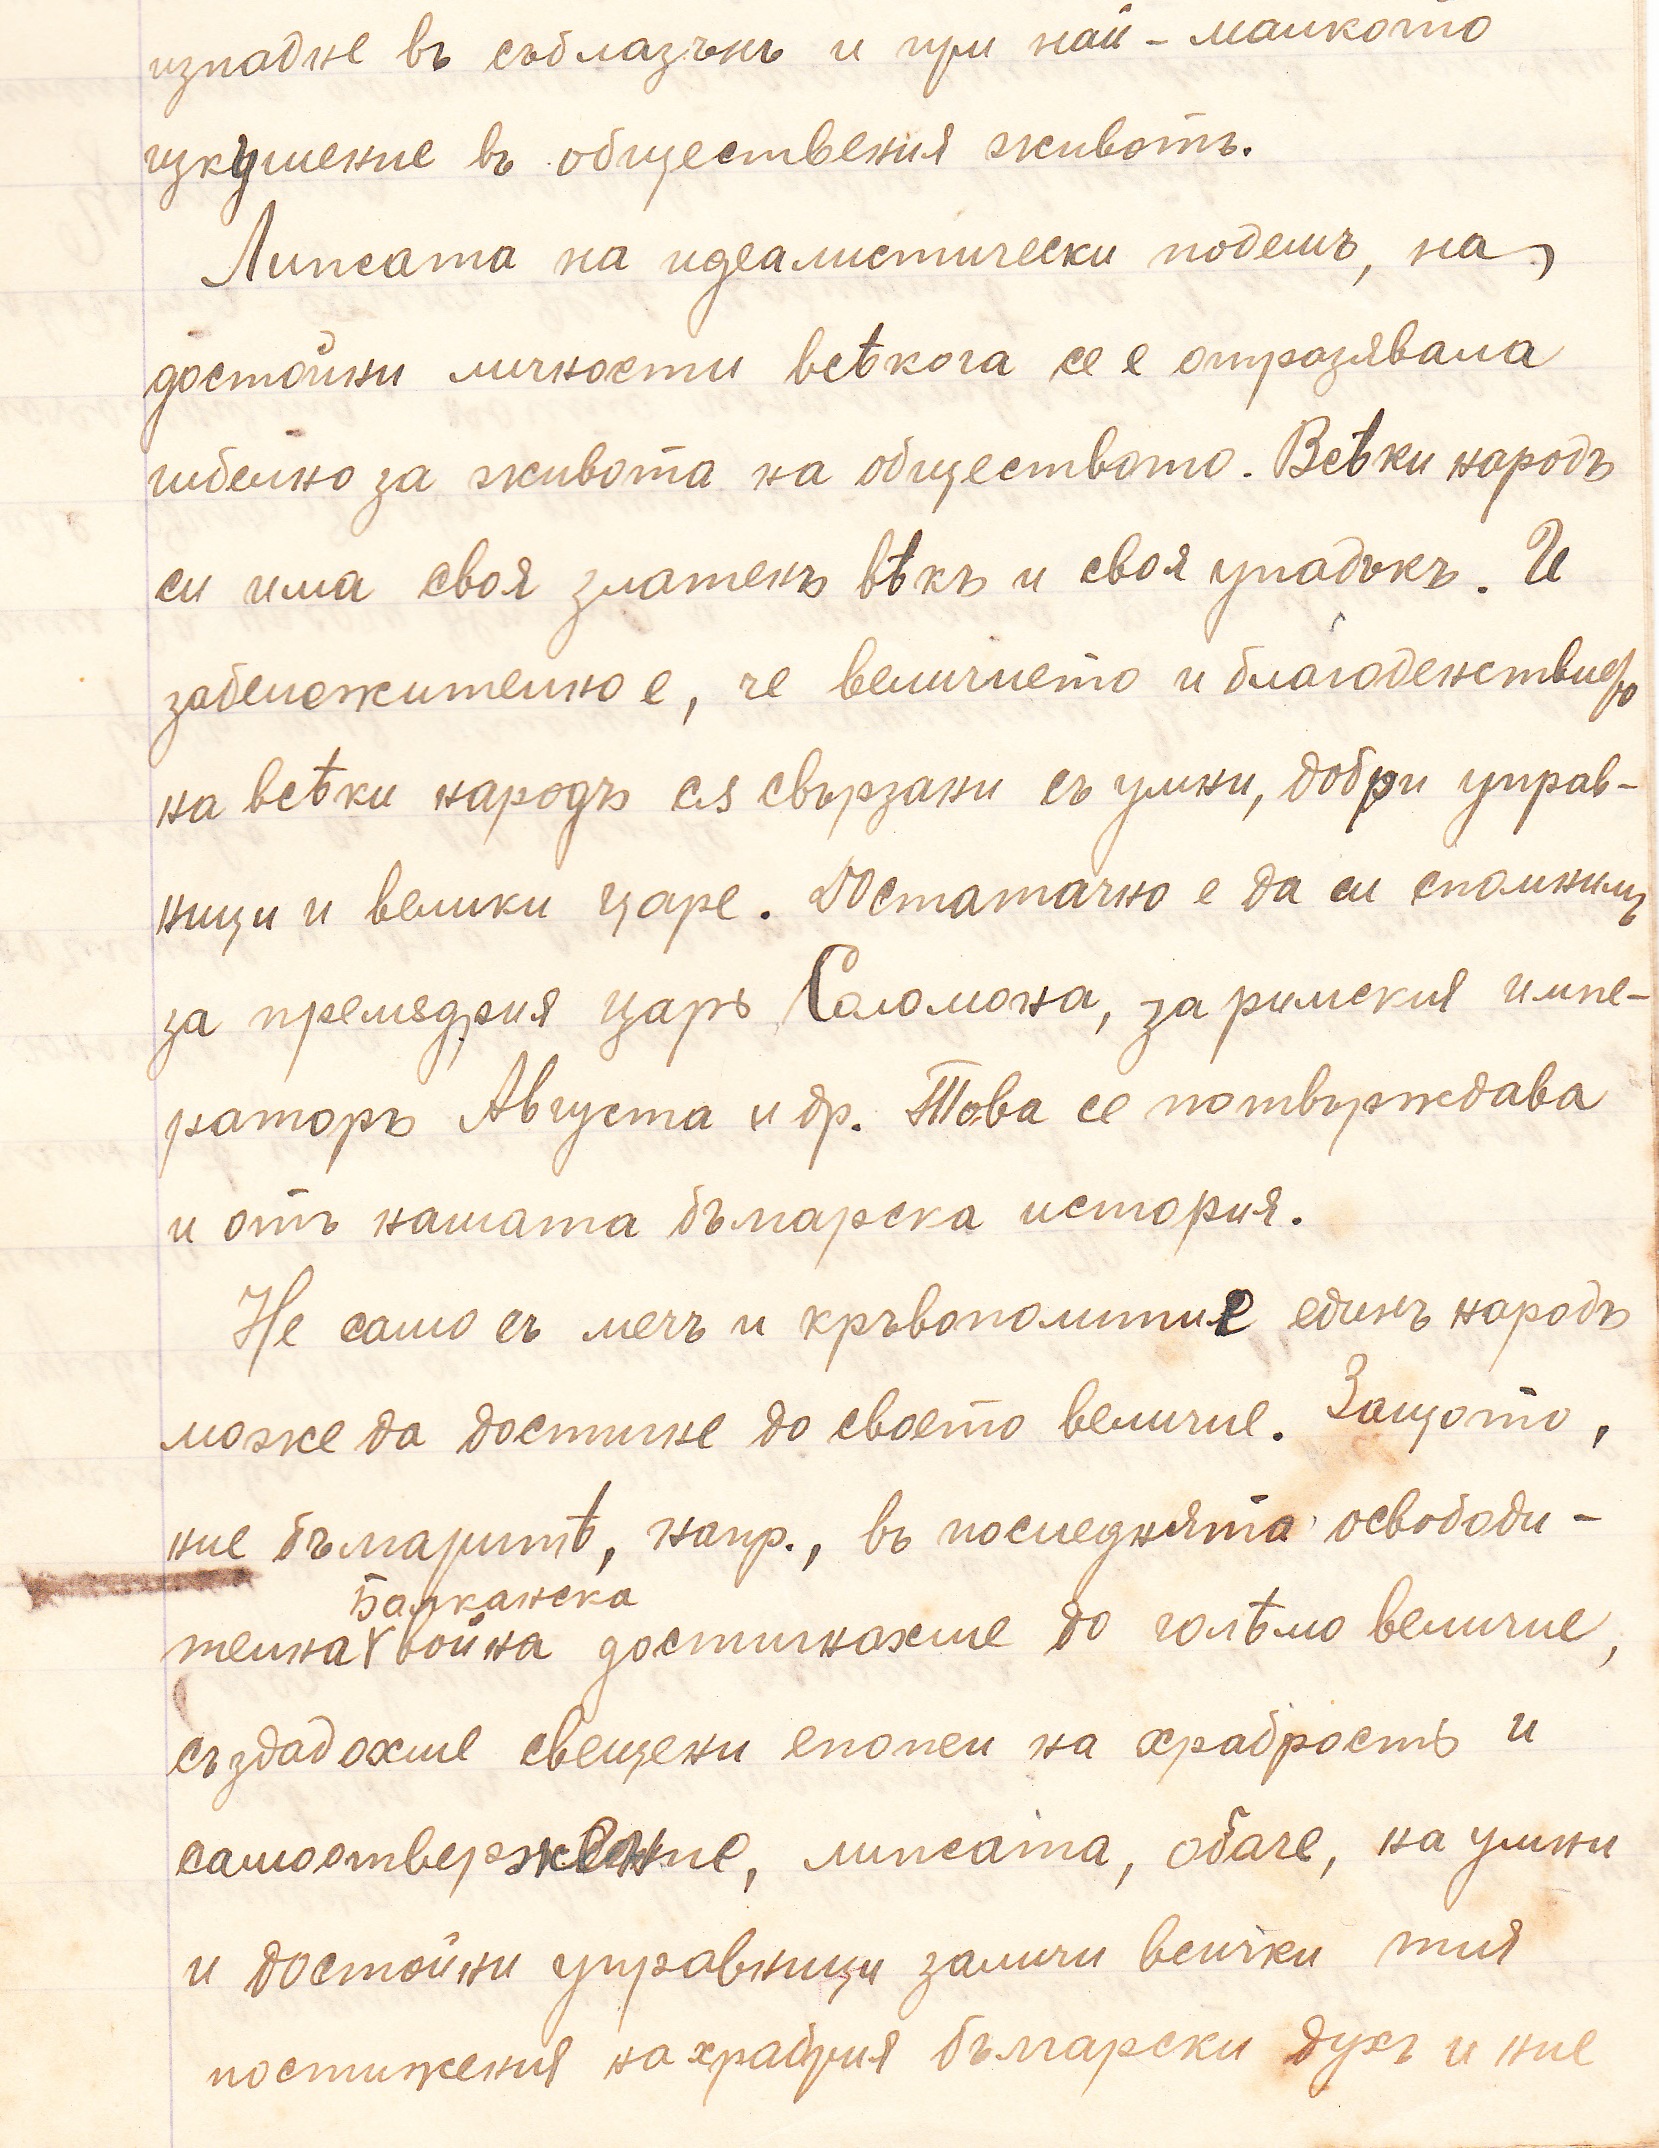 изпадне въ съблазънь и при най-малкото
изкушение въ обществения животъ.
Липсата на идеалистически подемъ, на
достойни личности всѣкога се е отразявала
гибелно за живота на обществото. Всѣки народъ
си има своя златенъ вѣкъ и своя упадъкъ. И
забележително е, че величието и благоденствието
на всѣки народъ сѫ свързани съ умни, добри управ-
ници и велики царе. Достатачно е да си спомнимъ
за премѫдрия царь Соломона, за римския импе-
раторъ Августа и др. Това се потвърждава
и отъ нашата българска история.
Не само съ мечъ и кръвопролитие единъ народъ
може да достигне до своето величие. Защото,
ние българитѣ, напр., въ последнята освободи-
Балканска
телна война достигнахме до голѣмо величие,
създадохме свещени епопеи на храбрость и
самоотвержение, липсата, обаче, на умни
и достойни управници заличи всички тия
постижения на храбрия български духъ и ние